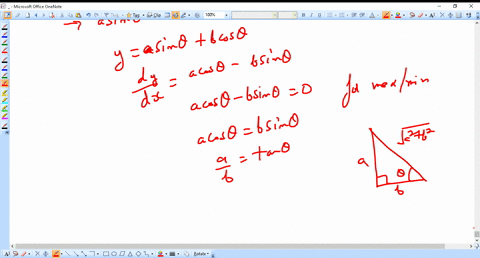 Microsoft Office OneNote
100%
→ asinθ
y = asinθ + bcosθ
dy/dx = acosθ - bsinθ
acosθ - bsinθ = 0 for max/min
acosθ = bsinθ
a/b = tanθ
√a²+b²
a
θ
b
Rotate